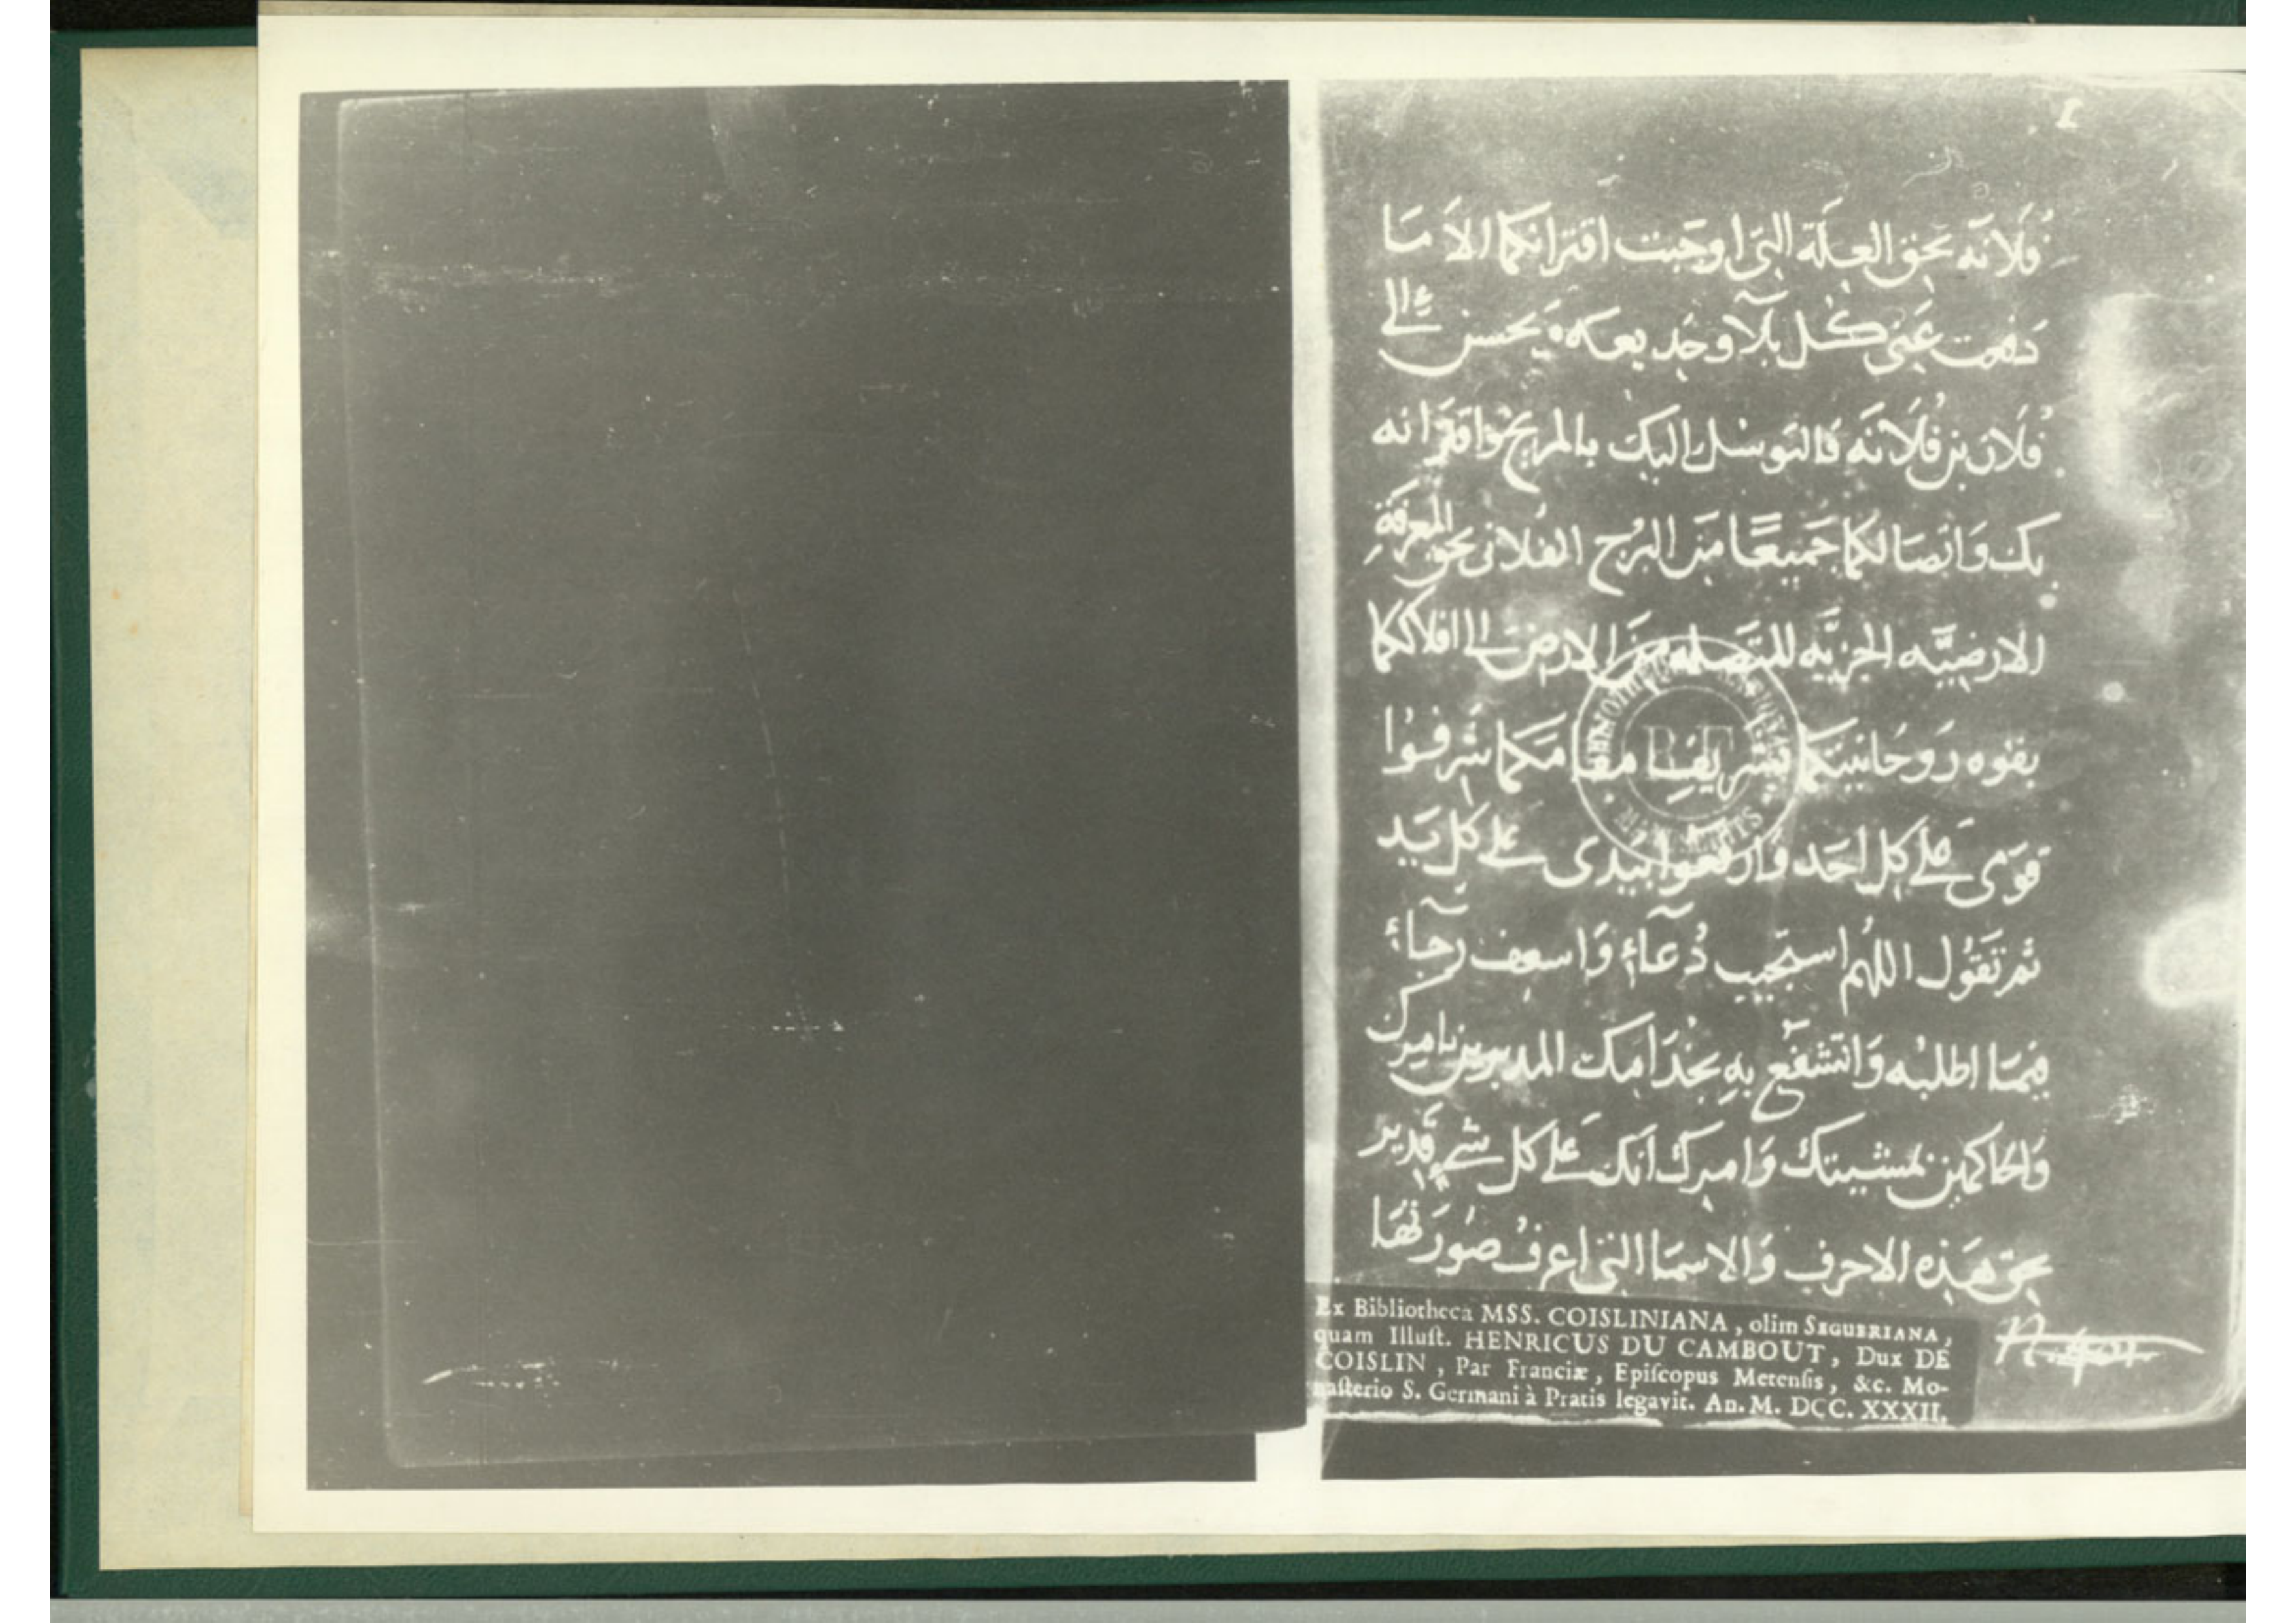 فلانه بحق العلة التى اوجبت اقترانكما الا ما
دفعت عنى كل بلاء وجد يعكه يحسن الى
فلان بن فلانه فالتوسل اليك بالمريخ واقترانه
بك وَاتصالكما جَميعًا مِن البرج الفلانى بحق المعرفة
الارضيَّه الجزيه المتصله مِن الارض الى افلاككما
بقوه رَوحانيتكما تشريف مقامَكما شرفوا
قوَى على كل احَد وَارفعوا بيدى على كل يَد
ثم تَقُول اللهم استجيب دُعآءٍ وَاسعف رجآءٍ
فيما اطلبُه وَاتشفع بهِ بخدَامِك المدبرين بامرك
وَالحاكمين بمشيتك وَامرك انك على كل شىء قدير
بحق هَذِه الاحرف وَالاسمَا التى اعرفُ صُورَتهَا
Ex Bibliotheca MSS. COISLINIANA, olim SEGUERIANA,
quam Illust. HENRICUS DU CAMBOUT, Dux DE
COISLIN, Par Franciæ, Episcopus Metensis, &c. Mo-
nasterio S. Germani à Pratis legavit. An. M. DCC. XXXII.